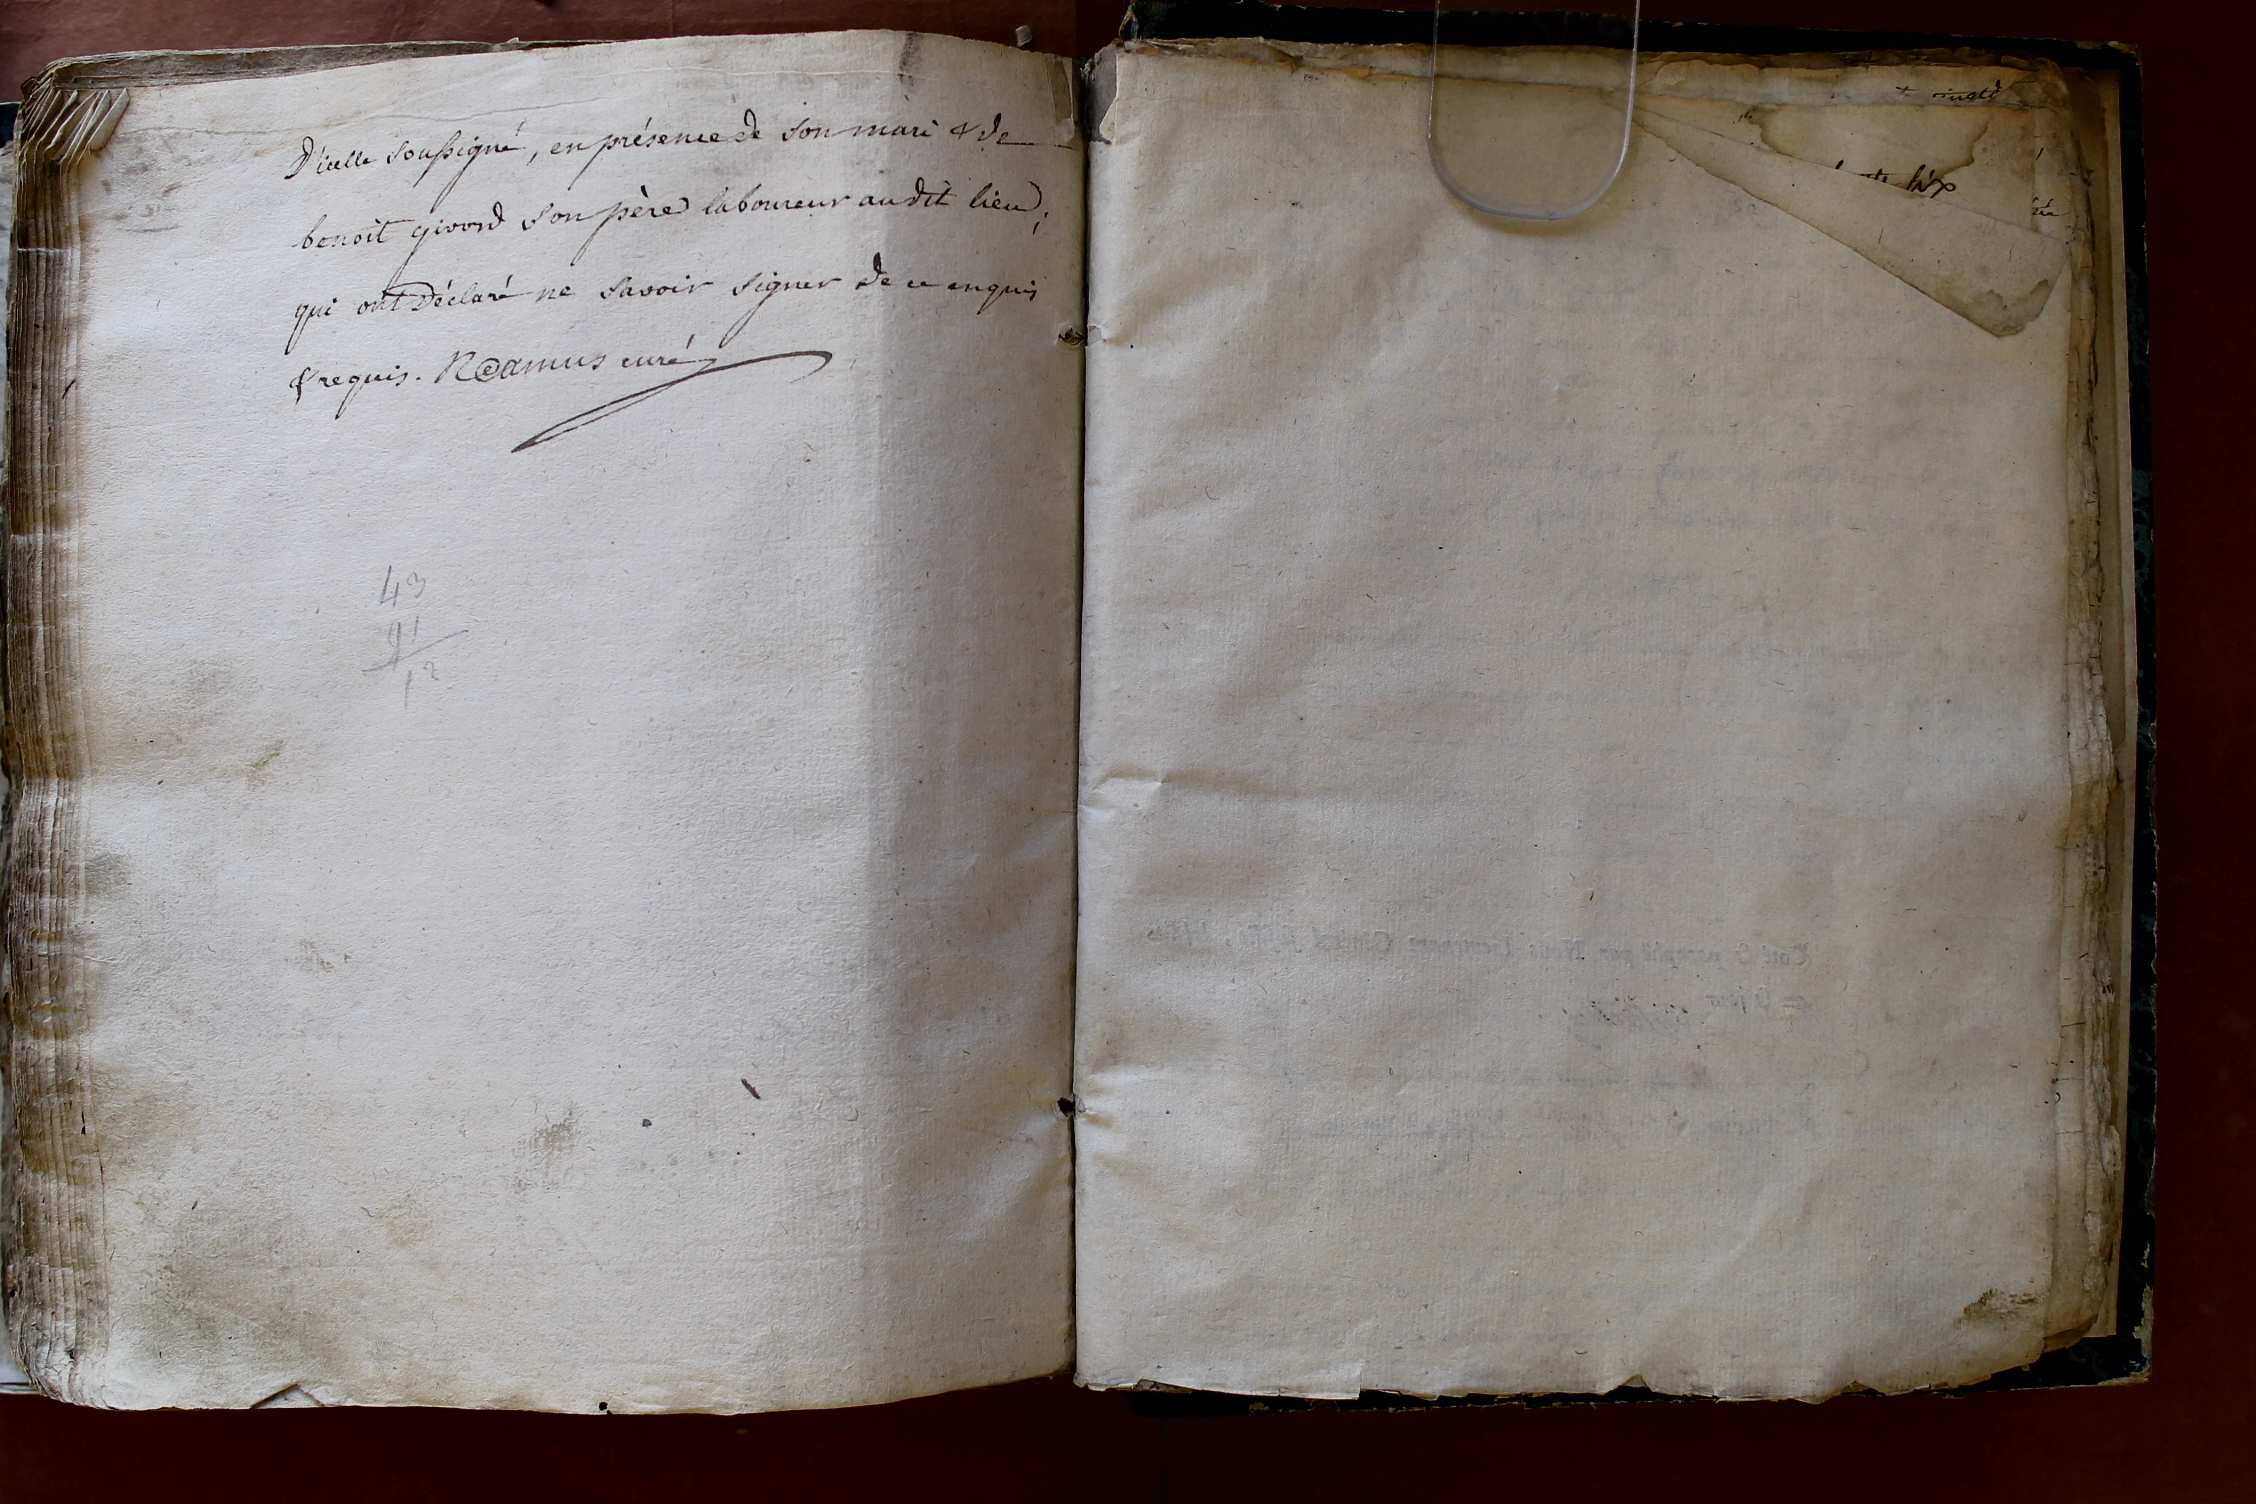 D'icelle soussigné, en présence de son mari & de
benoit givord son père laboureur audit lieu;
qui ont Déclaré ne savoir signer de ce enquis
& requis. Camus curé
43
91
12
six